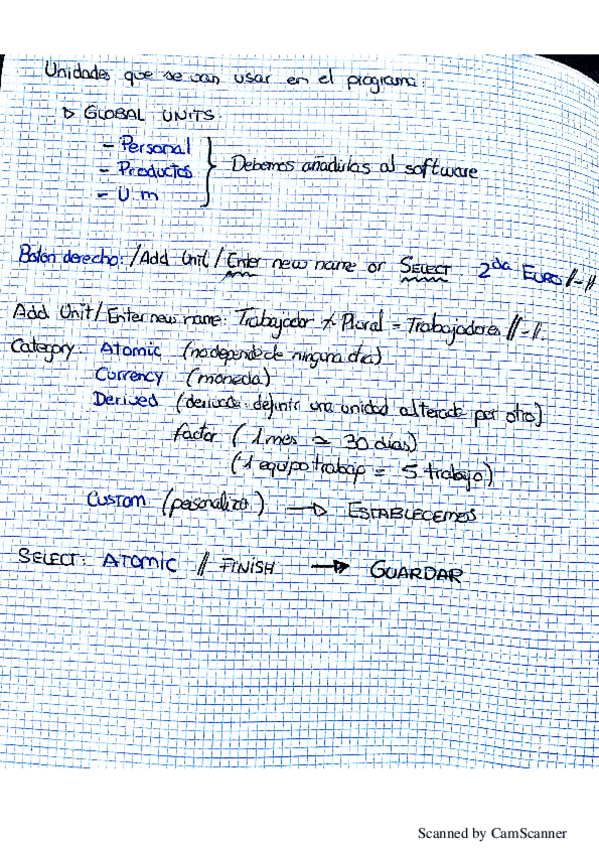 Unidades que se van usar en el programa:
▷ GLOBAL UNITS:
- Personal
- Productos
- U.m
} Debemos añadirlas al software
Botón derecho: /Add Unit / Enter new name or Select 2da EURO //-//
Add Unit/Enter new name: Trabajador Plural = Trabajadores //-//.
Category: Atomic (no depende de ninguna otra)
Currency (moneda)
Derived (derivada: definir una unidad alterada por otro)
factor (1 mes ≃ 30 días)
(1 equipo trabajo = 5 trabajo)
Custom (personalizo) → ESTABLECEMOS
SELECT: ATOMIC // FINISH → GUARDAR
Scanned by CamScanner